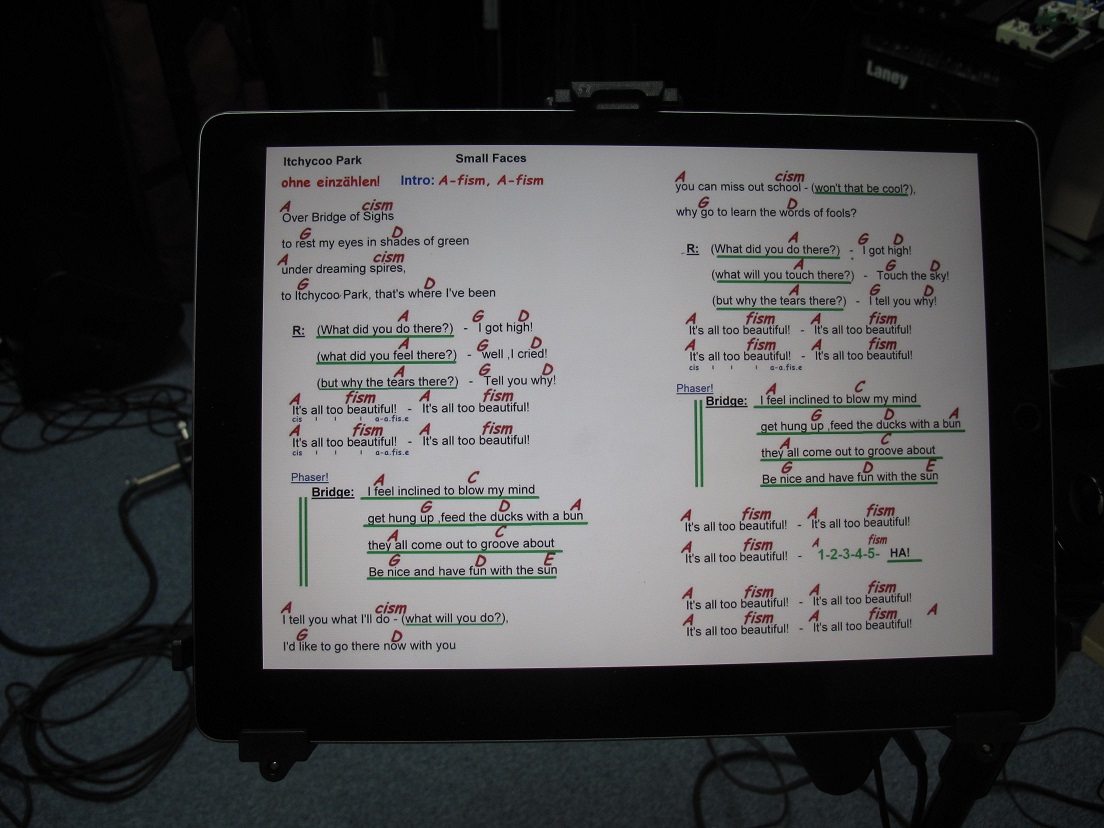 Laney
Itchycoo Park Small Faces
ohne einzählen! Intro: A-fism, A-fism
A cism
Over Bridge of Sighs
G D
to rest my eyes in shades of green
A cism
under dreaming spires,
G D
to Itchycoo Park, that's where I've been
A G D
R: (What did you do there?) - I got high!
A G D
(what did you feel there?) - well ,I cried!
A G D
(but why the tears there?) - Tell you why!
A fism A fism
It's all too beautiful! - It's all too beautiful!
cis ı ı ı a-a.fis.e
A fism A fism
It's all too beautiful! - It's all too beautiful!
cis ı ı ı a-a.fis.e
Phaser!
A C
Bridge: I feel inclined to blow my mind
G D A
get hung up ,feed the ducks with a bun
A C
they all come out to groove about
G D E
Be nice and have fun with the sun
A cism
I tell you what I'll do - (what will you do?),
G D
I'd like to go there now with you
A cism
you can miss out school - (won't that be cool?),
G D
why go to learn the words of fools?
A G D
R: (What did you do there?) - I got high!
A G D
(what will you touch there?) - Touch the sky!
A G D
(but why the tears there?) - I tell you why!
A fism A fism
It's all too beautiful! - It's all too beautiful!
A fism A fism
It's all too beautiful! - It's all too beautiful!
cis ı ı ı a-a.fis.e
Phaser!
A C
Bridge: I feel inclined to blow my mind
G D A
get hung up ,feed the ducks with a bun
A C
they all come out to groove about
G D E
Be nice and have fun with the sun
A fism A fism
It's all too beautiful! - It's all too beautiful!
A fism A fism
It's all too beautiful! - 1-2-3-4-5- HA!
A fism A fism
It's all too beautiful! - It's all too beautiful!
A fism A fism A
It's all too beautiful! - It's all too beautiful!